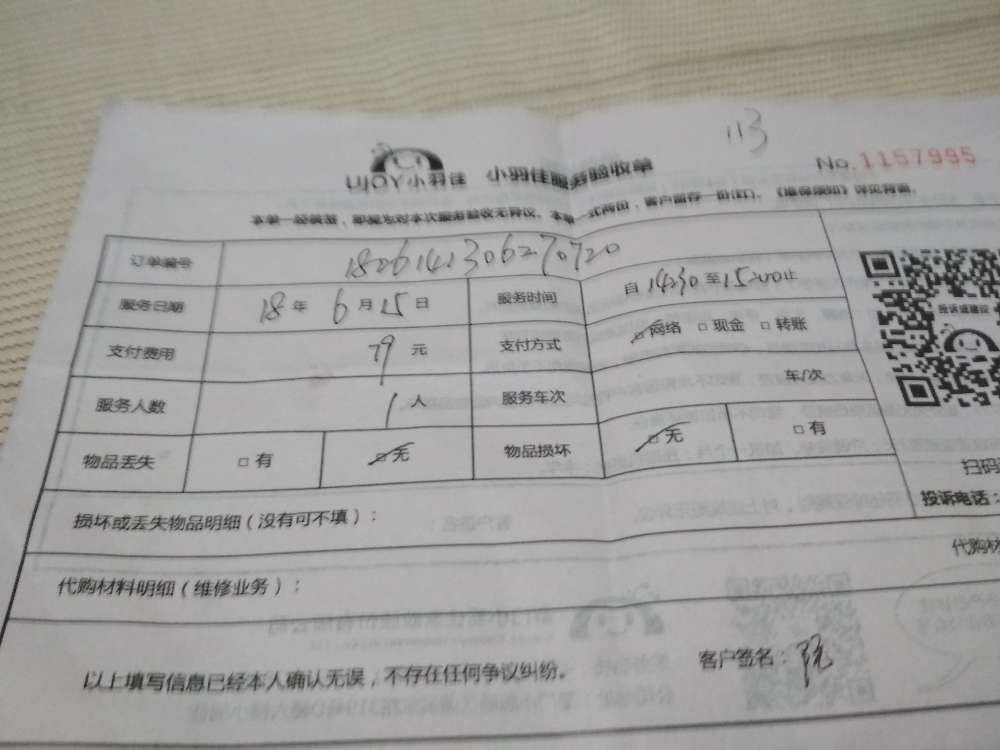 113
UJOY小羽佳 小羽佳服务验收单 No.1157995
本单一经签署，即视为对本次服务验收无异议。本单一式两份，客户留存一份(红)。《维保须知》详见背面。
订单编号 1826141306270720
服务日期 18年6月15日 服务时间 自14:30至15:00止
支付费用 79元 支付方式 ☑网络 □现金 □转账
服务人数 1人 服务车次 车/次
物品丢失 □有 ☑无 物品损坏 ☑无 □有
投诉或建议
扫码
投诉电话：
损坏或丢失物品明细（没有可不填）：
代购材料明细（维修业务）：
代购材
以上填写信息已经本人确认无误，不存在任何争议纠纷。 客户签名：